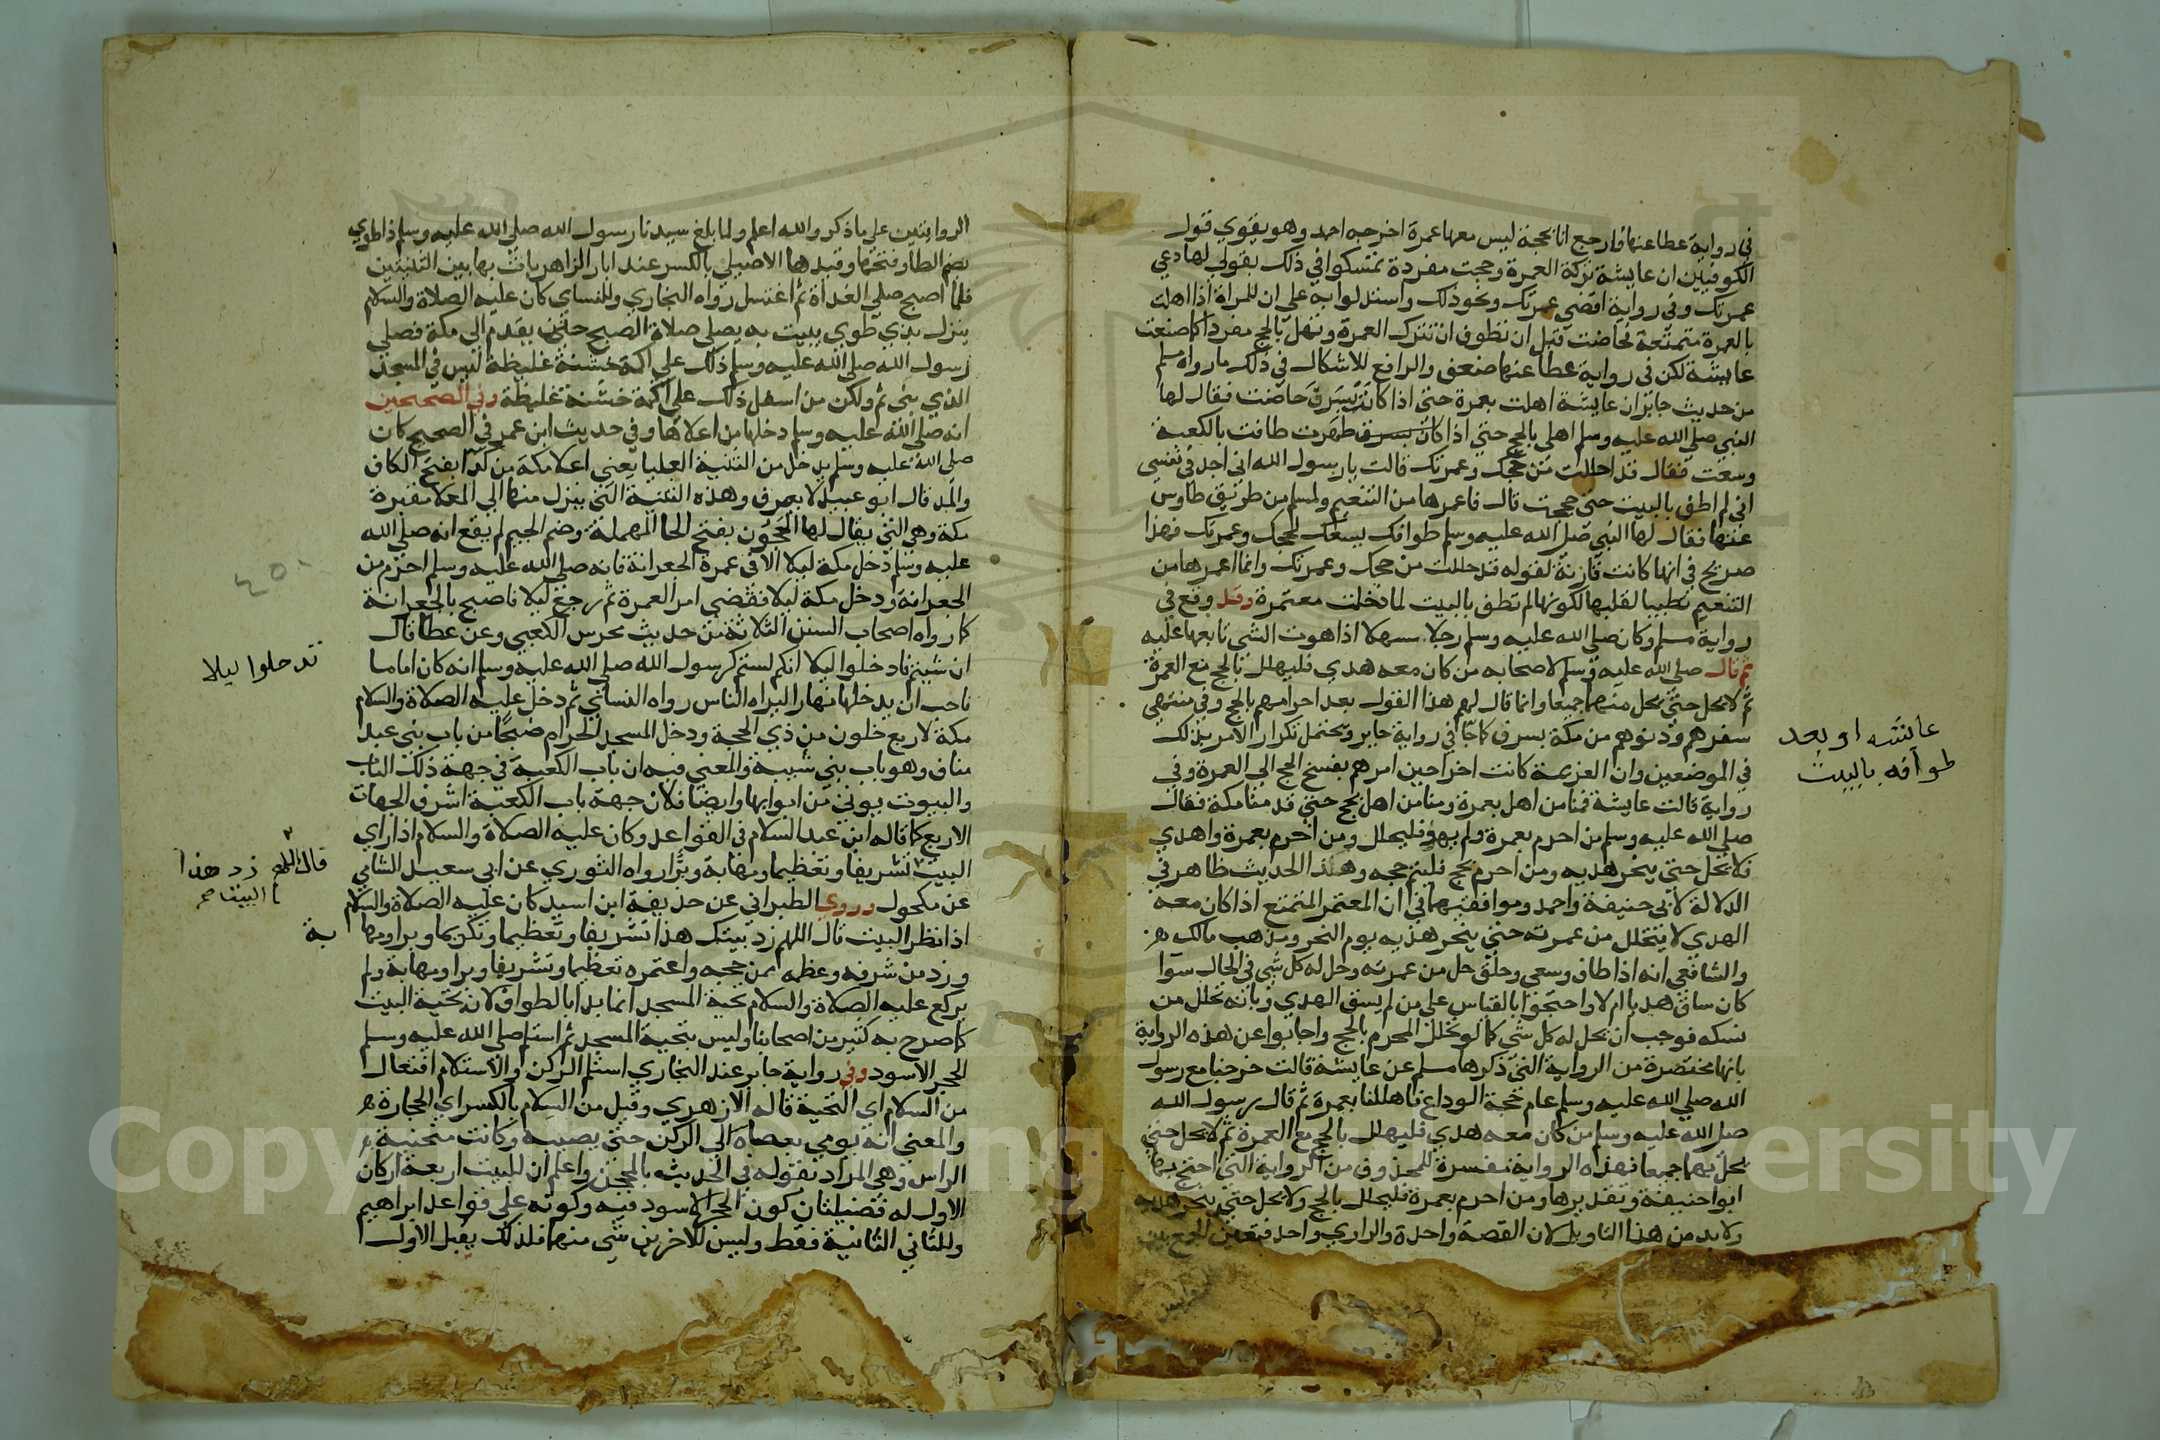 في رواية عطا عنها وارجع انا بحجة ليس معها عمرة اخرجه احمد وهو يقوي قول
الكوفيين ان عايشة تركة العمرة وحجت مفردة تمتسكوا في ذلك بقوله لها دعي
عمرتك وفي رواية اقضي عمرتك ونحو ذلك واستدلوا به على ان للمراة اذا اهلت
بالعمرة متمتعة فحاضت قبل ان تطوف ان تترك العمرة وتهل بالحج مفردا كما صنعت
عايشة لكن في رواية عطا عنها ضعف والرافع للاشكال في ذلك ما رواه مسلم
من حديث جابر ان عايشة اهلت بعمرة حتى اذا كانت بسرف حاضت فقال لها
النبي صلى الله عليه وسلم اهلي بالحج حتى اذا كان بسرف طهرت طافت بالكعبة
وسعت فقال قد احللت من حجك وعمرتك قالت يا رسول الله اني اجد في نفسي
اني لم اطف بالبيت حتى حججت قال فاعمرها من التنعيم ولمسلم من طريق طاوس
عنها فقال لها النبي صلى الله عليه وسلم طوافك يسعك لحجك وعمرتك فهذا
صريح في انها كانت قارنة لقوله قد حللت من حجك وعمرتك وانما اعمرها من
التنعيم تطييبا لقلبها لكونها لم تطف بالبيت لما دخلت معتمرة وقد وقع في
رواية مسلم وكان صلى الله عليه وسلم رجلا سهلا اذا هوت الشي تابعها عليه
ثم قال صلى الله عليه وسلم لاصحابه من كان معه هدي فليهلل بالحج مع العمرة
ثم لا يحل حتى يحل منهما جميعا وانما قال لهم هذا القول بعد احرامهم بالحج وفي منتهى
سفرهم ودنوهم من مكة بسرف كما جا في رواية جابر ويحتمل تكرار الامر بذلك
في الموضعين وان العزيمة كانت اخرا حين امرهم بفسخ الحج الى العمرة وفي
رواية قالت عايشة فمنا من اهل بعمرة ومنا من اهل بحج حتى قدمنا مكة فقال
صلى الله عليه وسلم من احرم بعمرة ولم يهد فليحلل ومن احرم بعمرة واهدي
فلا يحل حتى ينحر هديه ومن احرم بحج فليتم حجه وهذا الحديث ظاهر في
الدلالة لابي حنيفة واحمد وموافقيهما في ان المعتمر المتمتع اذا كان معه
الهدي لا يتحلل من عمرته حتى ينحر هديه يوم النحر ومذهب مالك
والشافعي انه اذا طاف وسعي وحلق حل من عمرته وحل له كل شي في الحال سوا
كان ساق هديا ام لا واحتجوا بالقياس على من لم يسق الهدي وبانه تحلل من
نسكه فوجب ان يحل له كل شي كما لو تحلل المحرم بالحج واجابوا عن هذه الرواية
بانها مختصرة من الرواية التي ذكرها مسلم عن عايشة قالت خرجنا مع رسول
الله صلى الله عليه وسلم عام حجة الوداع فاهللنا بعمرة ثم قال رسول الله
صلى الله عليه وسلم من كان معه هدي فليهلل بالحج مع العمرة ثم لا يحل حتى
يحل بهما جميعا فهذه الرواية مفسرة للمحذوف من الرواية التي احتج بها
ابو احنيفة وتقديرها ومن احرم بعمرة فليهلل بالحج ولا يحل حتى ينحر هديه
ولا بد من هذا التاويل لان القصة واحدة والراوي واحد فتعين الجمع بين
عايشه او بعد
طوافه بالبيت
الروايتين على ما ذكر والله اعلم ولما بلغ سيدنا رسول الله صلى الله عليه وسلم ذا طوي
بضم الطا وفتحها وقيدها الاصيلي بالكسر عند ابار الزاهر بات بها بين الثنيتين
فلما اصبح صلي الغداة ثم اغتسل رواه البخاري وللنساي كان عليه الصلاة والسلام
ينزل بذي طوي يبيت به يصلي صلاة الصبح حتى يقدم الى مكة فصلي
رسول الله صلى الله عليه وسلم ذلك على اكمة خشنة غليظة ليس في المسجد
الذي بني ثم ولكن من اسفل ذلك على اكمة خشنة غليظة وفي الصحيحين
انه صلى الله عليه وسلم دخلها من اعلاها وفي حديث ابن عمر في الصحيح كان
صلى الله عليه وسلم يدخل من الثنية العليا يعني اعلا مكة من كدا بفتح الكاف
والمد قال ابو عبيد لا يصرف وهذه الثنية التي ينزل منها الى المعلا مقبرة
مكة وهي التي يقال لها الحجون بفتح الحا المهملة وضم الجيم لم يقع انه صلى الله
عليه وسلم دخل مكة ليلا الا في عمرة الجعرانة فانه صلى الله عليه وسلم احرم من
الجعرانة ودخل مكة ليلا فقضي امر العمرة ثم رجع ليلا فاصبح بالجعرانة
كما رواه اصحاب السنن الثلاثة من حديث محرس الكعبي وعن عطا قال
ان شيتم فادخلوا ليلا انكم لستم كرسول الله صلى الله عليه وسلم انه كان اماما
فاحب ان يدخلها نهارا ليراه الناس رواه النساي ثم دخل عليه الصلاة والسلام
مكة لاربع خلون من ذي الحجة ودخل المسجد الحرام ضحا من باب بني عبد
مناف وهو باب بني شيبة والمعني فيه ان باب الكعبة في جهة ذلك الباب
والبيوت يوتي من ابوابها وايضا فلان جهة باب الكعبة اشرف الجهات
الاربع كما قاله ابن عبد السلام في القواعد وكان عليه الصلاة والسلام اذا راي
البيت تشريفا وتعظيما ومهابة وبرا رواه الثوري عن ابي سعيد الشامي
عن مكحول وروي الطبراني عن حذيفة ابن اسيد كان عليه الصلاة والسلام
اذا نظر البيت قال اللهم زد بيتك هذا تشريفا وتعظيما وتكريما وبرا ومها
وزد من شرفه وعظمه ممن حجه واعتمره تعظيما وتشريفا وبرا ومهابة ولم
يركع عليه الصلاة والسلام تحية المسجد انما بدا بالطواف لانه تحية البيت
كما صرح به كثير من اصحابنا وليس بتحية المسجد ثم استلم صلى الله عليه وسلم
الحجر الاسود وفي رواية جابر عند البخاري استلم الركن والاستلام افتعال
من السلام اي التحية قاله الازهري وقيل من السلام بالكسر اي الحجارة
والمعنى انه يومي بعصاه الى الركن حتى يصيبه وكانت منحنية
الراس وهي المراد بقوله في الحديث بالمحجن واعلم ان للبيت اربعة اركان
الاول له فضيلتان كون الحجر الاسود فيه وكونه على قواعد ابراهيم
وللثاني الثانية فقط وليس للاخرين شي منهما فلذلك يقبل الاول ا
٤٥٠
تدخلوا ليلا
قال اللهم زد هذا
البيت صح
بة
Copyright © King Saud University